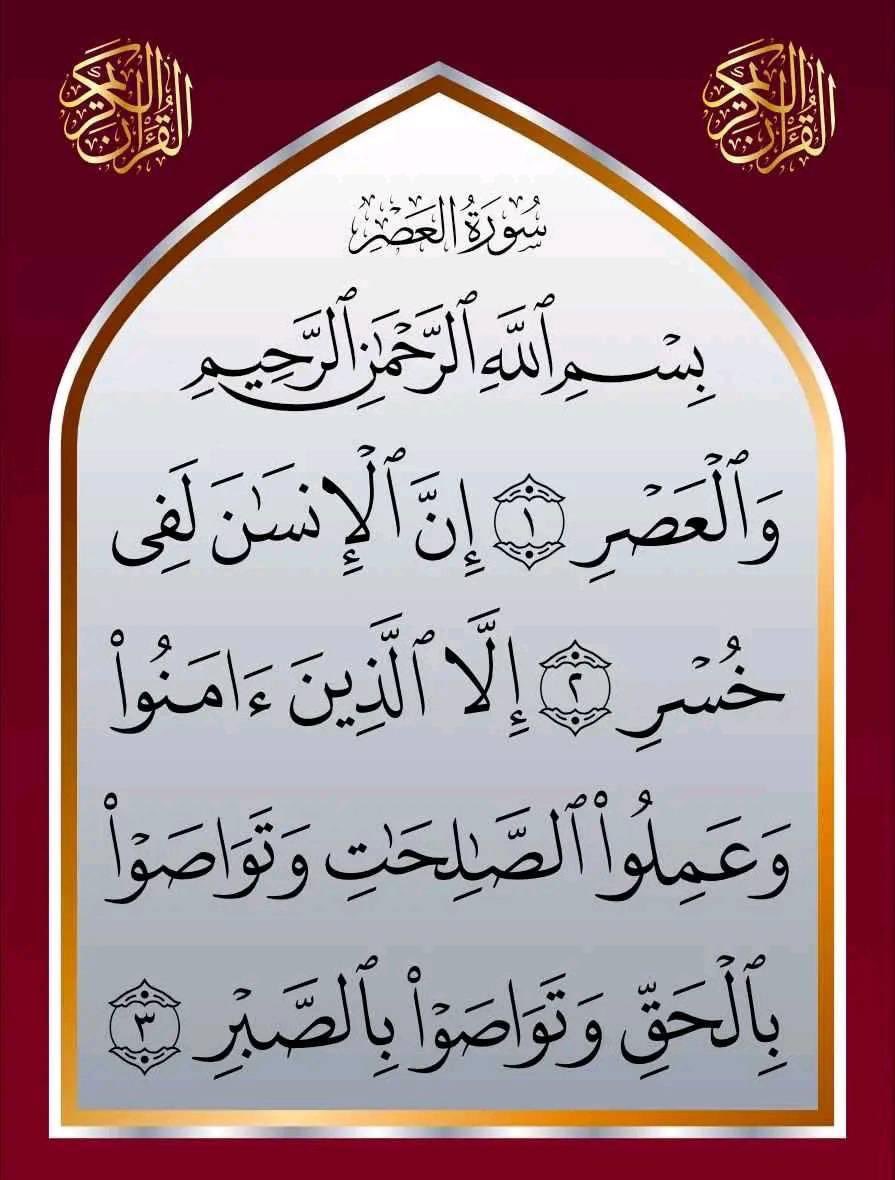 القرآن الكريم
القرآن الكريم
سُورَةُ العَصْرِ
بِسْمِ ٱللَّهِ ٱلرَّحْمَٰنِ ٱلرَّحِيمِ
وَٱلْعَصْرِ ١ إِنَّ ٱلْإِنسَٰنَ لَفِى
خُسْرٍ ٢ إِلَّا ٱلَّذِينَ ءَامَنُوا۟
وَعَمِلُوا۟ ٱلصَّٰلِحَٰتِ وَتَوَاصَوْا۟
بِٱلْحَقِّ وَتَوَاصَوْا۟ بِٱلصَّبْرِ ٣